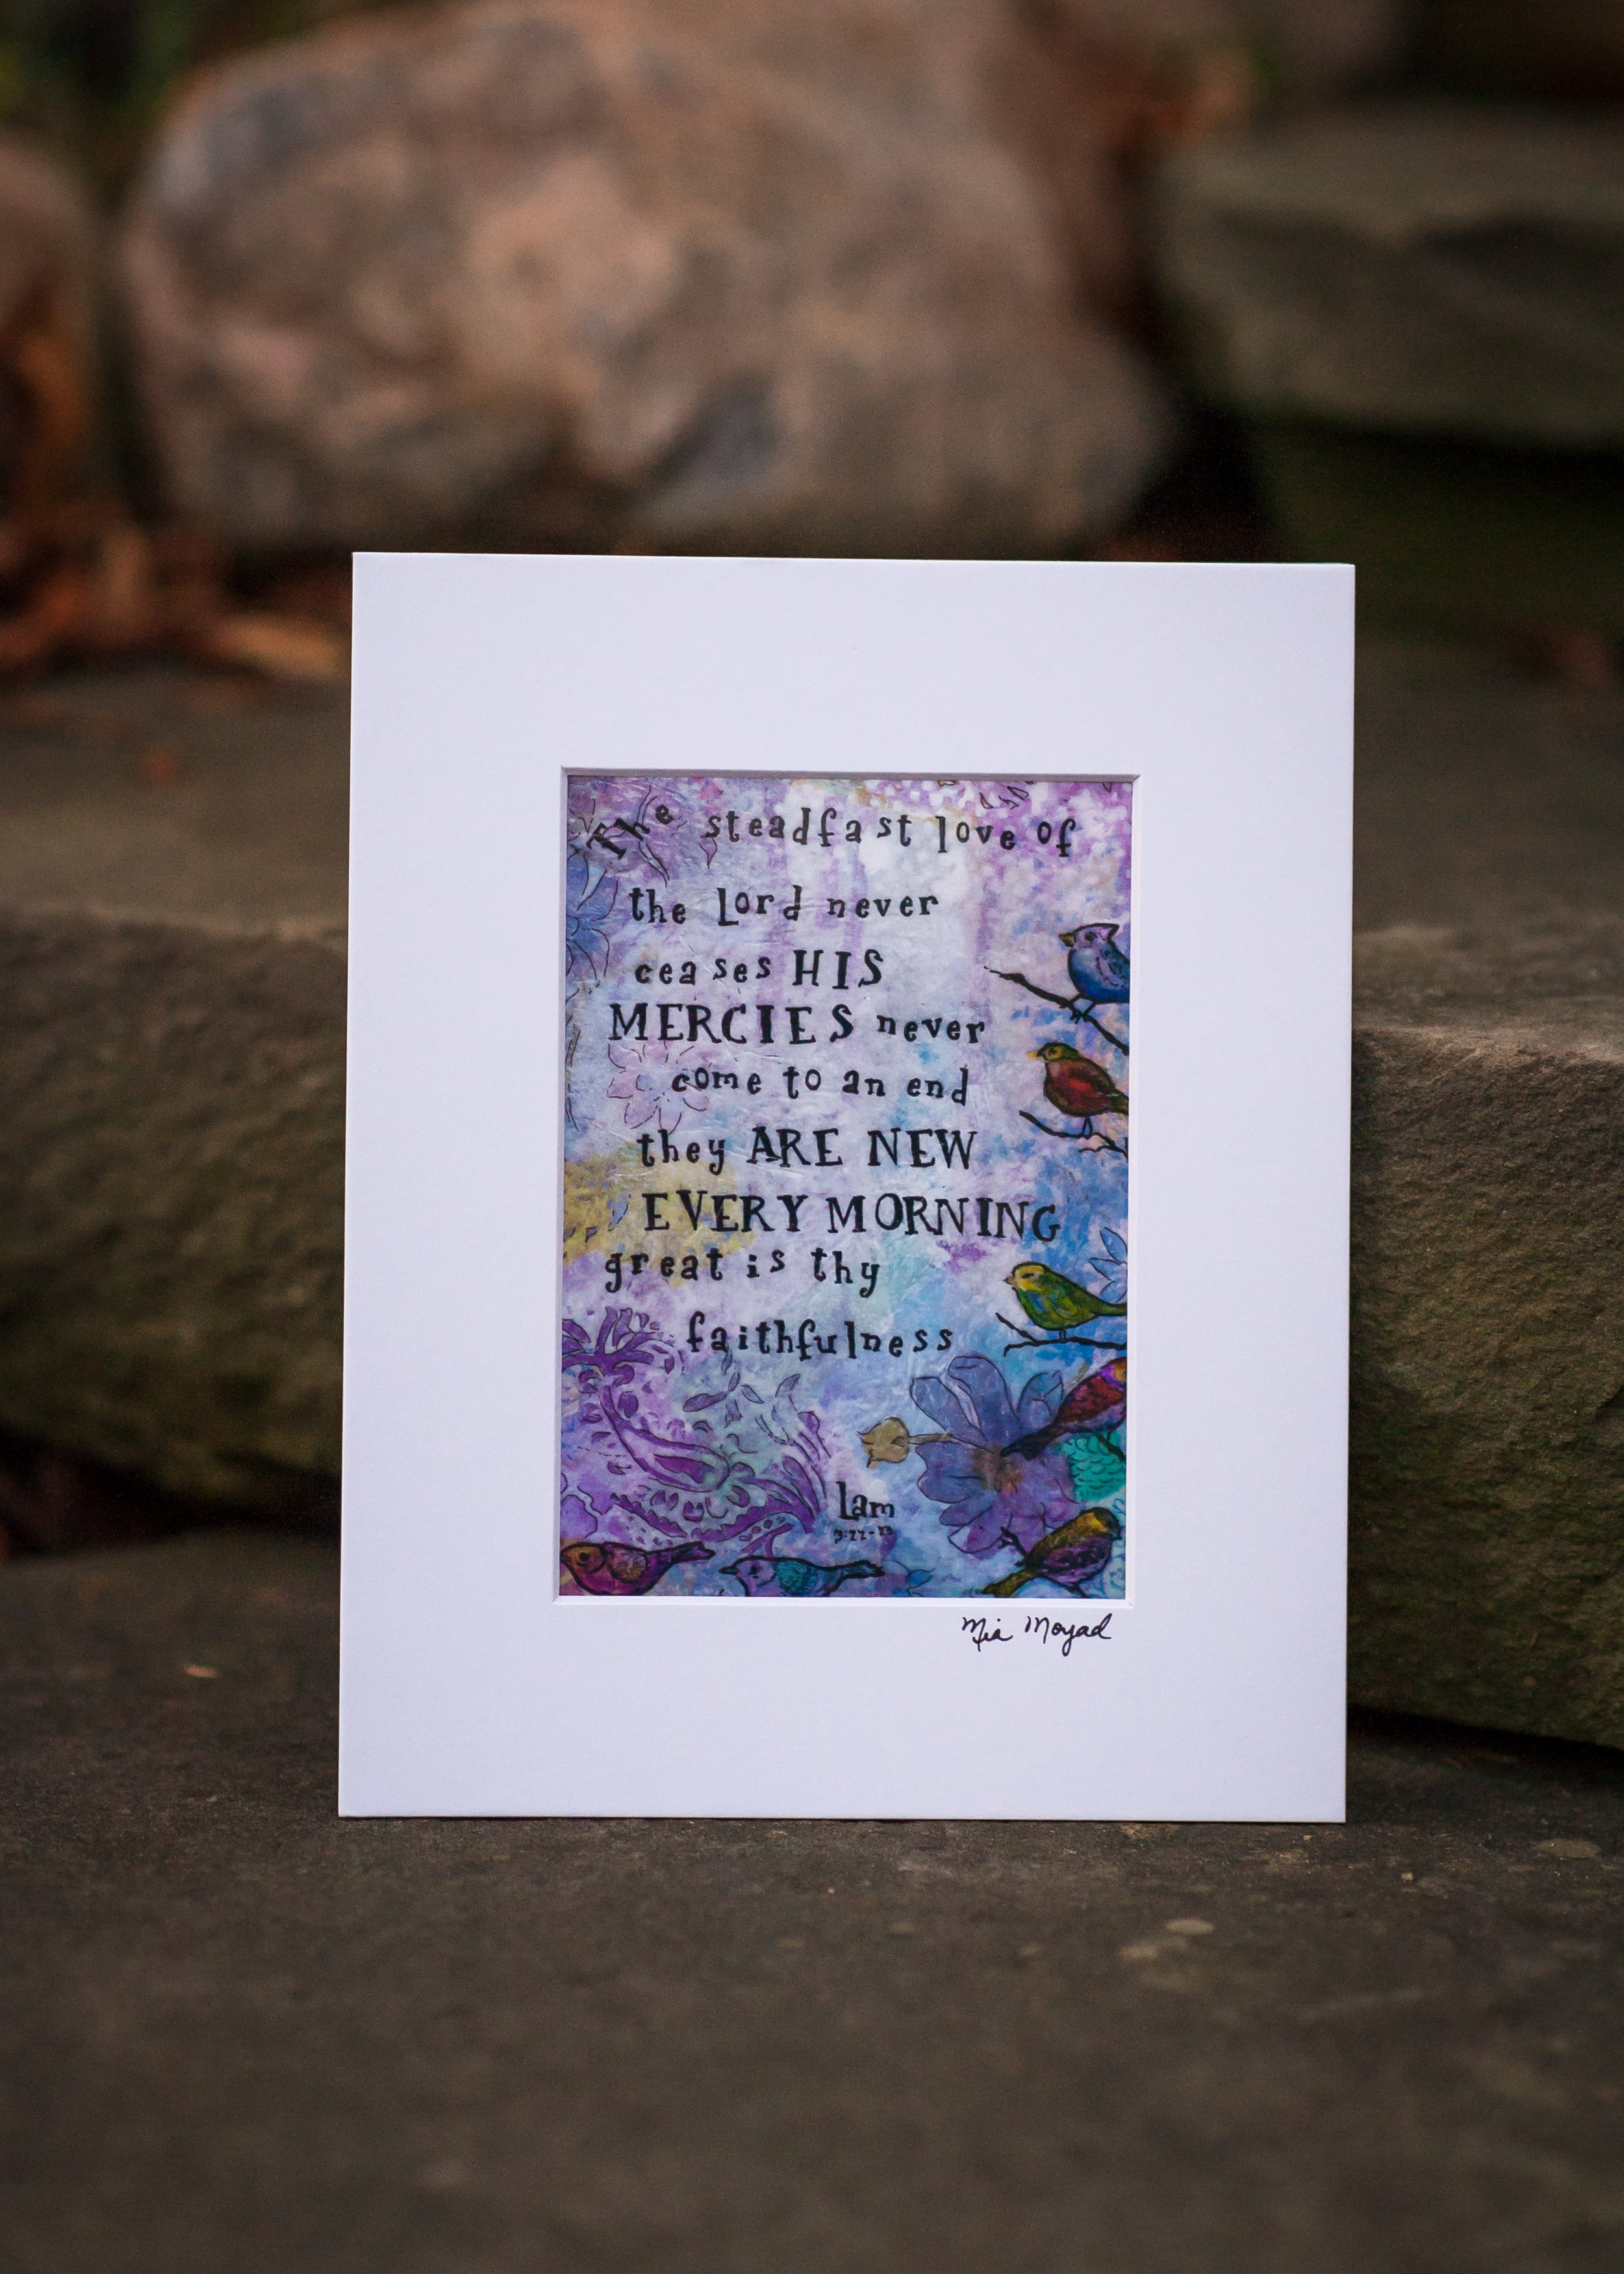 The steadfast love of
the Lord never
ceases HIS
MERCIES never
come to an end
they ARE NEW
EVERY MORNING
great is thy
faithfulness
Lam
3:22-23
Mia Moyad